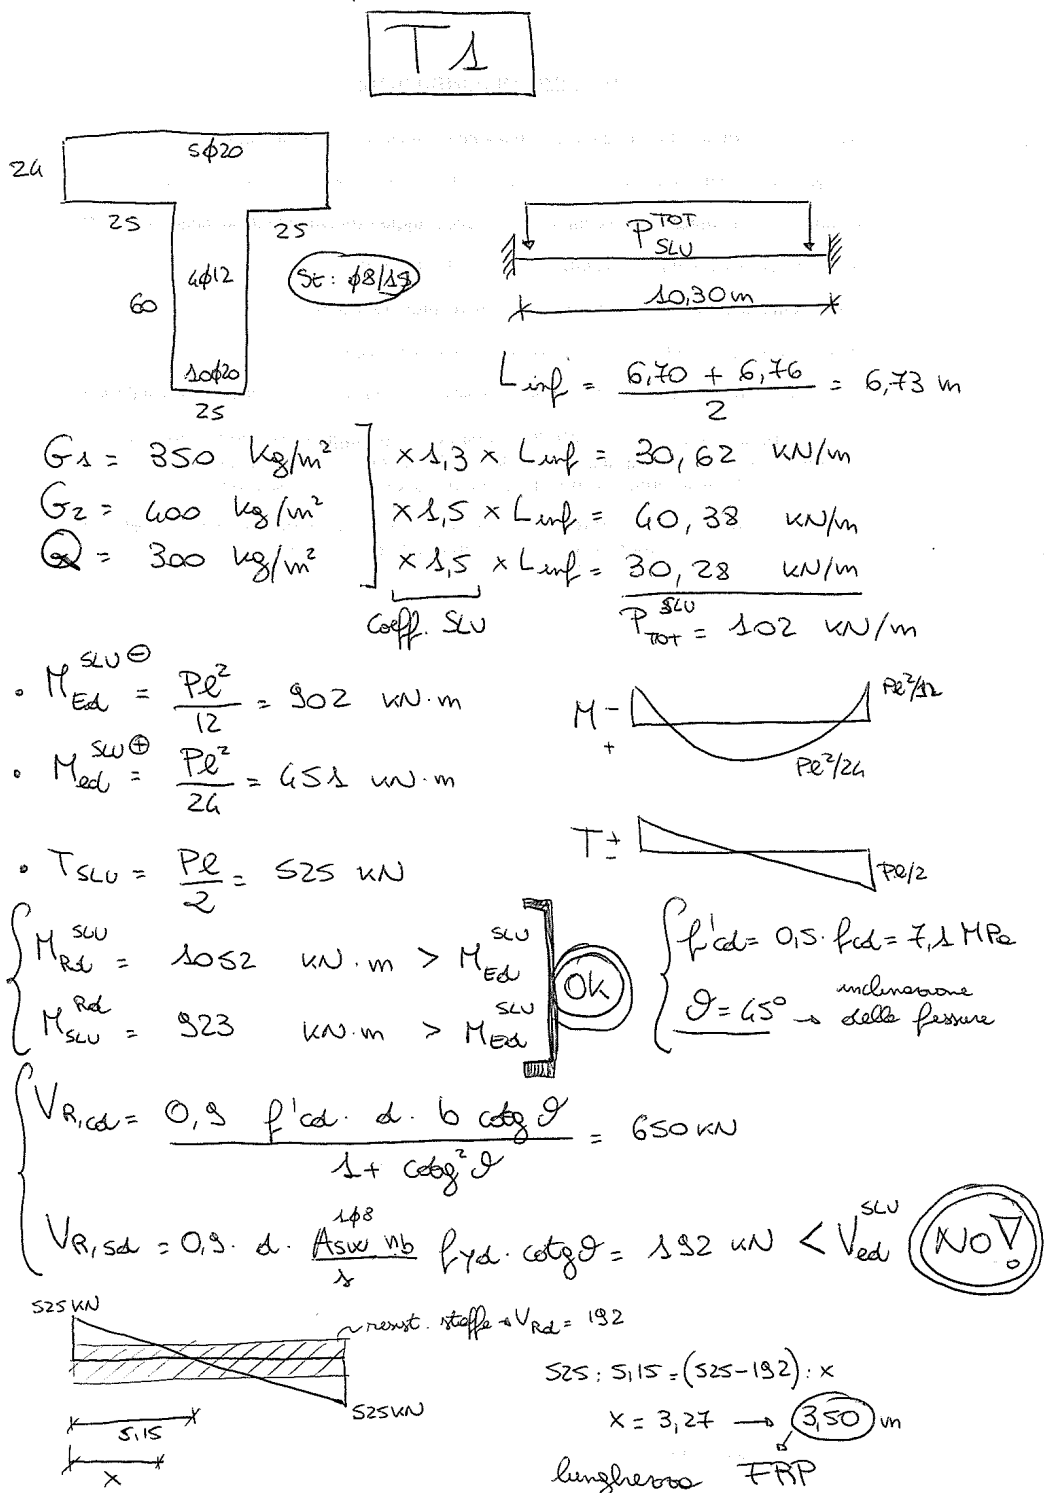 T1
5ϕ20
24
25
25
4ϕ12
St: ϕ8/15
60
10ϕ20
25
P SLU TOT
10,30 m
Linf = (6,70 + 6,76)/2 = 6,73 m
G1 = 350 kg/m² ×1,3 × Linf = 30,62 kN/m
G2 = 400 kg/m² ×1,5 × Linf = 40,38 kN/m
Q = 300 kg/m² ×1,5 × Linf = 30,28 kN/m
Coeff. SLU
P TOT SLU = 102 kN/m
• M Ed SLU ⊖ = Pl²/12 = 902 kN·m
M - +
Pl²/12
Pl²/24
• M ed SLU ⊕ = Pl²/24 = 451 kN·m
• T SLU = Pl/2 = 525 kN
T + -
Pl/2
M Rd SLU = 1052 kN·m > M Ed SLU
M SLU Rd = 923 kN·m > M Ed SLU
OK
f'cd = 0,5·fcd = 7,1 MPa
ϑ = 45° → inclinazione delle fessure
V R,cd = (0,9 f'cd · d · b cotg ϑ)/(1 + cotg² ϑ) = 650 kN
1ϕ8
V R,sd = 0,9 · d · (Asw nb)/s fyd · cotg ϑ = 192 kN < V ed SLU NO!
525 kN
resist. staffe → V Rd = 192
525 kN
5,15
x
525 : 5,15 = (525-192) : x
x = 3,27 → 3,50 m
lunghezza FRP